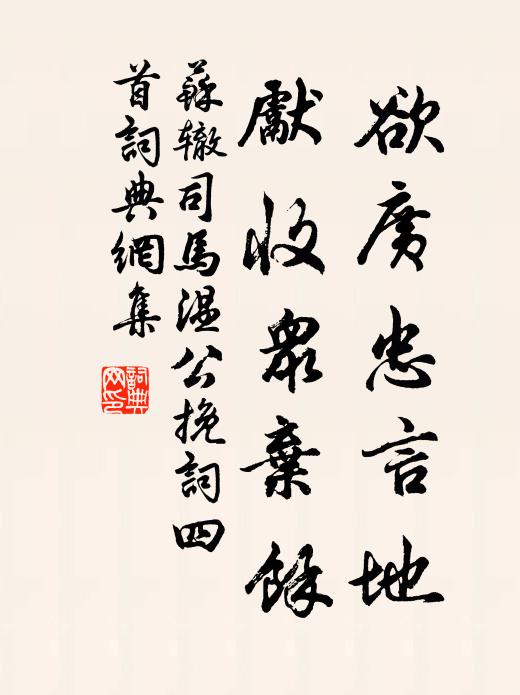 欲廣忠言地
獻收眾棄餘
蘇辙司馬温公挽詞四
首詞典網集
詞典网印